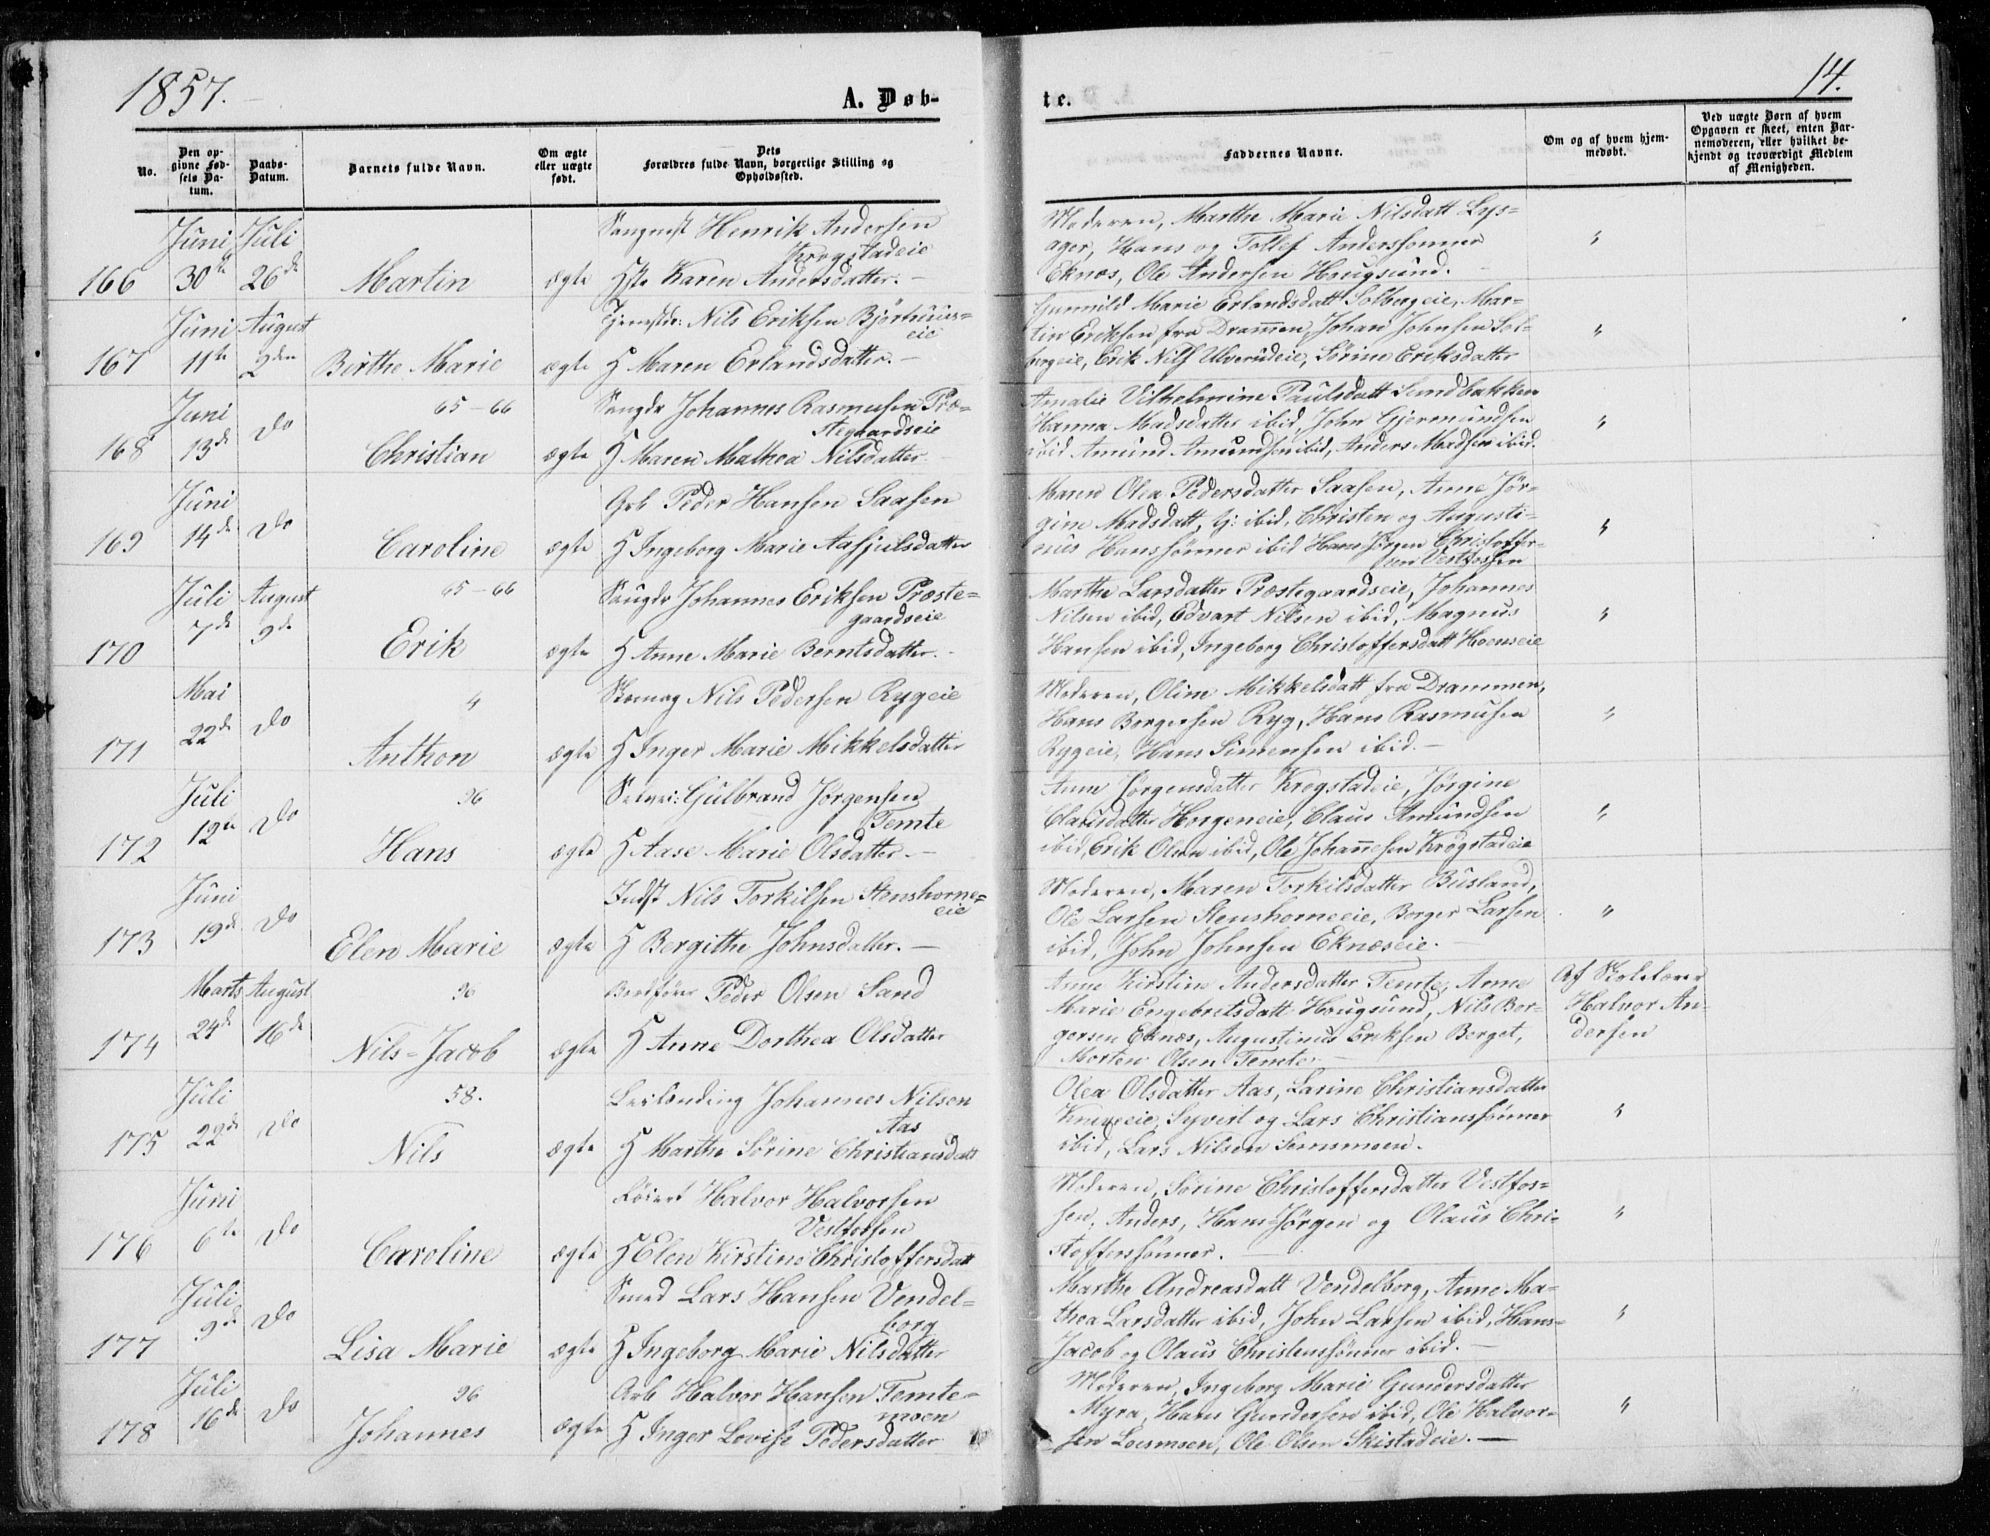 1857.
A. Døb-
te.
14.
No.
Den op-
givne Fød-
sels Da-
tum.
Daabs-
Datum.
Barnets fulde Navn.
Om ægte
eller uægte
født.
Dets
Forældres fulde Navn, borgerlige Stilling og
Opholdssted.
Faddernes Navne.
Om og af hvem hjem-
medøbt.
Ved uægte Børn af hvem
Opgaven er skeet, enten Bar-
nemoderen, eller hvilket be-
kjendt og troværdigt Medlem
af Menigheden.
166
Juni
30te
Juli
26de
Martin
ægte
Henrik Andersen
Krogstadeie
Karen Andersdatter. —
Moderen, Marthe Marie Nilsdatt Lys-
ager, Hans og Tollef Anderssønner
Eknæs, Ole Andersen Hougsund. —
"
167
Juni
11te
August
2den
Birthe Marie
ægte
Nils Eriksen Bjørhuus-
eie
H Maren Erlandsdatter. —
Gunnild Marie Erlandsdatt Solbergeie, Mar-
tin Eriksen fra Drammen, Johan Johnsen Sol-
bergeie, Erik Nilss Ulverudeie, Sørine Eriksdatter
"
168
Juni
13de
Do
65-66
Christian
ægte
Johannes Rasmusen Præ-
stegaardseie
H Maren Mathea Nilsdatter
Amalie Vilhelmine Paulsdatt Sundbakken
Hanna Madsdatter ibid, John Gjermundsen
ibid Amund Amundsen ibid, Anders Madsen ibid.
"
169
Juni
14de
Do
Caroline
ægte
Peder Hansen Saasen
H Ingeborg Marie Aasjulsdatter
Maren Olea Pedersdatter Saasen, Anne Jør-
gine Madsdatt, tj: ibid, Christen og Augusti-
nus Hanssønner ibid Hans Jørgen Christoffer-
sen Vestfossen
"
170
Juli
7de
August
9de
65-66
Erik
ægte
Johannes Eriksen Præste-
gaardseie
H Anne Marie Berntsdatter. —
Marthe Larsdatter Præstegaardseie, Johannes
Nilsen ibid, Edvart Nilsen ibid, Magnus
Hansen ibid, Ingeborg Christoffersdatt Hoenseie
"
171
Mai
22de
Do
4
Anthon
ægte
Skomag Nils Pedersen Rygeie
H Inger Marie Mikkelsdatter
Moderen, Oline Mikkelsdatt fra Drammen,
Hans Borgersen Ryg, Hans Rasmusen
Rygeie, Hans Simensen ibid. —
"
172
Juli
12te
Do
96
Hans
ægte
Selvei: Gulbrand Jørgensen
Temte
H Aase Marie Olsdatter. —
Anne Jørgensdatter Krogstadeie, Jørgine
Clausdatter Horgeneie, Claus Amundsen
ibid, Erik Olsen ibid, Ole Johannesen Krogstadeie
"
173
Juni
19de
Do
Elen Marie
ægte
Indst Nils Torkilsen Stenshorne-
eie
H Bergithe Johnsdatter. —
Moderen, Maren Torkilsdatter Busland,
Ole Larsen Stenshorneeie, Borger Larsen
ibid, John Johnsen Eknæseie. —
"
174
Marts
24de
August
16de
96
Nils-Jacob
ægte
Peder Olsen Sand
H Anne Dorthea Olsdatter
Anne Kirstine Andersdatter Temte, Anne
Marie Engebretsdatt Hougsund, Nils Bor-
gersen Eknæs, Augustinus Eriksen Berget,
Morten Olsen Temte. —
Af Skolelærer
Halvor An-
dersen
175
Juli
22de
Do
58.
Nils
ægte
Leilænding Johannes Nilsen
Aas
H Marthe Sørine Christiansdatt
Olea Olsdatter Aas, Larine Christiansdatter
Syvert og Lars Christianssønner
ibid, Lars Nilsen Semsmoen.
"
176
Juni
6te
Do
Caroline
ægte
Halvor Halvorsen
Vestfossen
H Elen Kirstine Christoffersdatt
Moderen, Sørine Christoffersdatter Vestfos-
sen, Anders, Hans-Jørgen og Olaus Chri-
stofferssønner. —
"
177
Juli
9de
Do
Lisa Marie
ægte
Smed Lars Hansen Vendel-
borg
H Ingeborg Marie Nilsdatter
Marthe Andreasdatt Vendelborg, Anne Ma-
thea Larsdatter ibid, John Larsen ibid, Hans-
Jacob og Olaus Christenssønner ibid. —
"
178
Juli
16de
Do
96
Johannes
ægte
Arb Halvor Hansen Temte-
moen
H Inger Lovise Pedersdatter
Moderen, Ingeborg Marie Gundersdatter
Myra, Hans Gundersen ibid, Ole Halvor-
sen Loesmoen, Ole Olsen Skistadeie. —
"